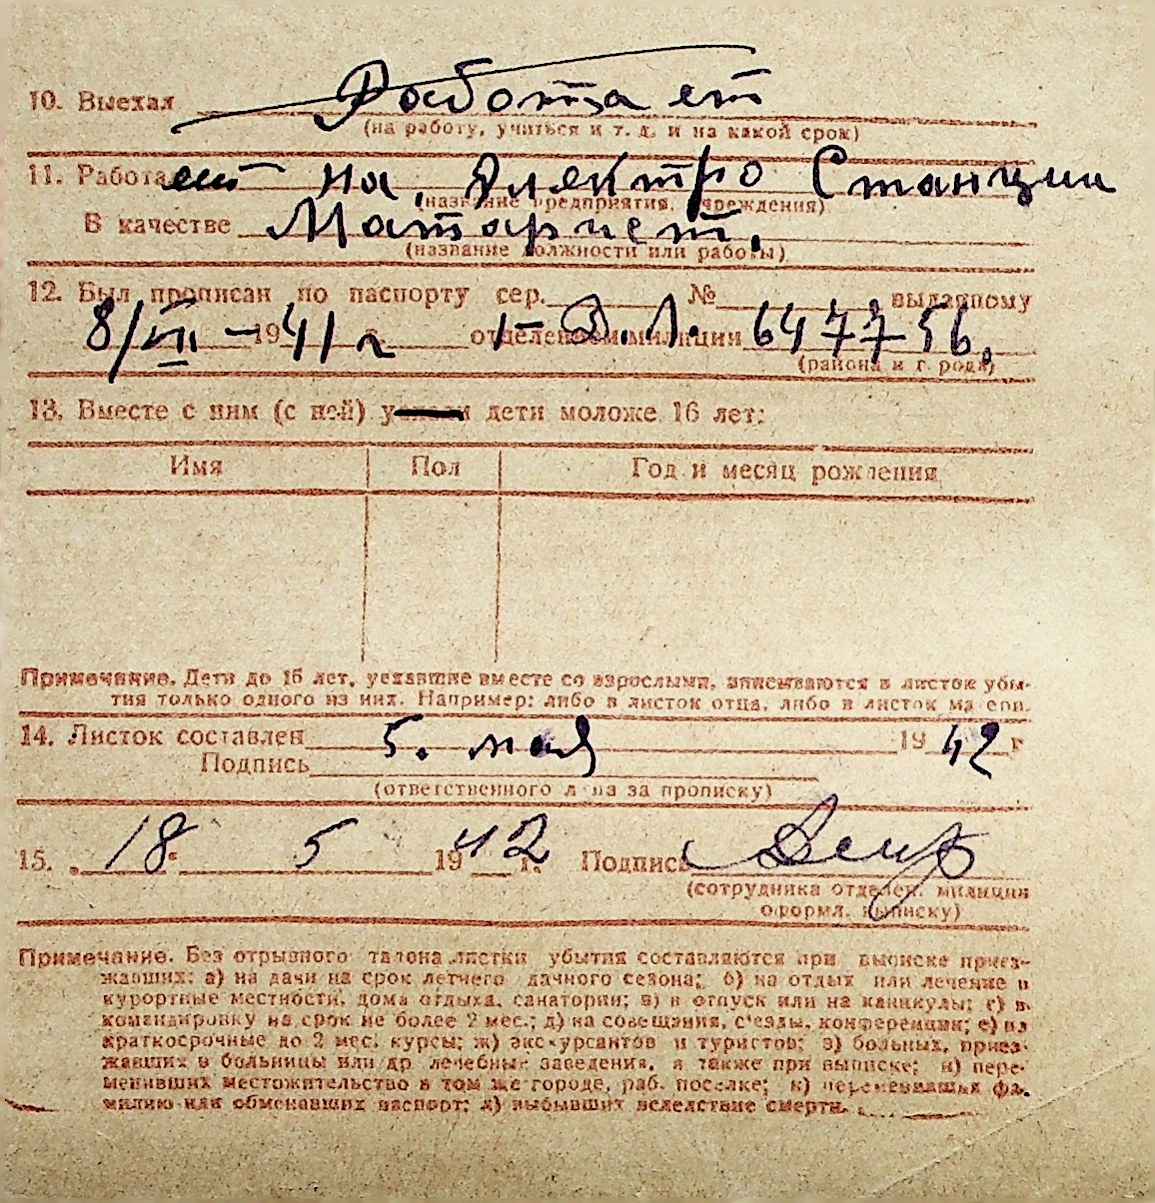 10. Выехал Работа ет
(на работу, учиться и т. д. и на какой срок)
11. Работает на Електро Станции
(название предприятия, учреждения)
В качестве Матарист.
(название должности или работы)
12. Был прописан по паспорту сер. № выданному
8/VII - 1941 г. 1- отделением милиции 647756.
(района и города)
13. Вместе с ним (с ней) дети моложе 16 лет:
Имя Пол Год и месяц рождения
Примечание. Дети до 16 лет, уехавшие вместе со взрослыми, вписываются в листок убы-
тия только одного из них. Например: либо в листок отца, либо в листок матери.
14. Листок составлен 5. мая 1942 г
Подпись
(ответственного лица за прописку)
15. 18. 5 1942 г. Подпись
(сотрудника отделен. милиции
оформл. выписку)
Примечание. Без отрывного талона листки убытия составляются при выписке приез-
жавших: а) на дачи на срок летнего дачного сезона; б) на отдых или лечение в
курортные местности, дома отдыха, санатории; в) в отпуск или на каникулы; г) в
командировку на срок не более 2 мес.; д) на совещания, с'езды, конференции; е) на
краткосрочные до 2 мес. курсы; ж) экскурсантов и туристов; з) больных, приез-
жавших в больницы или др лечебные заведения, а также при выписке; и) пере-
менивших местожительство в том же городе, раб. поселке; к) переменивших фа-
милию или обменавших паспорт; л) выбывших вследствие смерти.